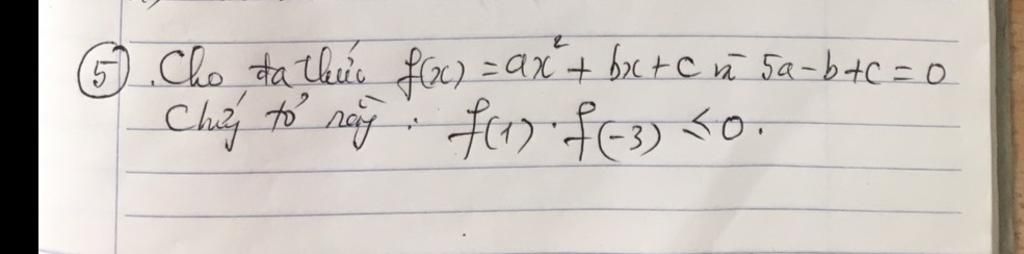 ⑤. Cho đa thức f(x) = ax² + bx + c và 5a - b + c = 0
Chứng tỏ rằng : f(1) . f(-3) ≤ 0.